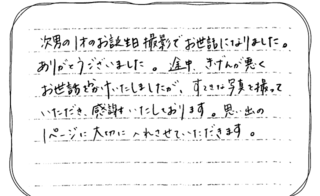 次男の1才のお誕生日撮影でお世話になりました。
ありがとうございました。途中、きげんが悪く
お世話をかけいたしましたが、すてきな写真を撮って
いただき、感謝いたしております。思い出の
1ページに大切に入れさせていただきます。